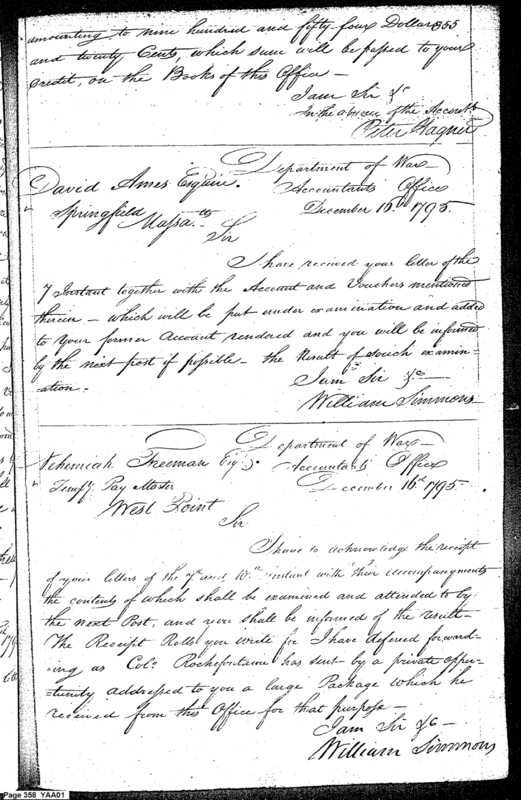 355
amounting to nine hundred and fifty four Dollars
and twenty Cents, which sum will be passed to your
Credit, on the Books of this Office —
I am Sir &c
In the absence of the Accountt
Peter Hagner
Department of War
David Ames Esquire. Accountants Office
Springfield December 16th 1795.
Massatts
Sir
I have received your letter of the
7 Instant together with the Account and Vouchers mentioned
therein — which will be put under examination and added
to your former Account rendered and you will be informed
by the next post if possible — the Result of such examin-
ation.
I am Sir &c
William Simmons
Department of War
Nehemiah Freeman Esqr. Accountants Office
Tempy Pay Master December 16th 1795.
West Point
Sir
I have to acknowledge the receipt
of your letters of the 7th and 10th instant with their accompanyments
the contents of which shall be examined and attended to by
the next Post, and you shall be informed of the result —
The Receipt Rolls you write for I have defered forward-
ing as Colo. Rochefontaine has sent by a private oppor-
tunity addressed to you a large Package which he
received from this Office for that purpose —
I am Sir &c —
William Simmons
Page 358 YAA01